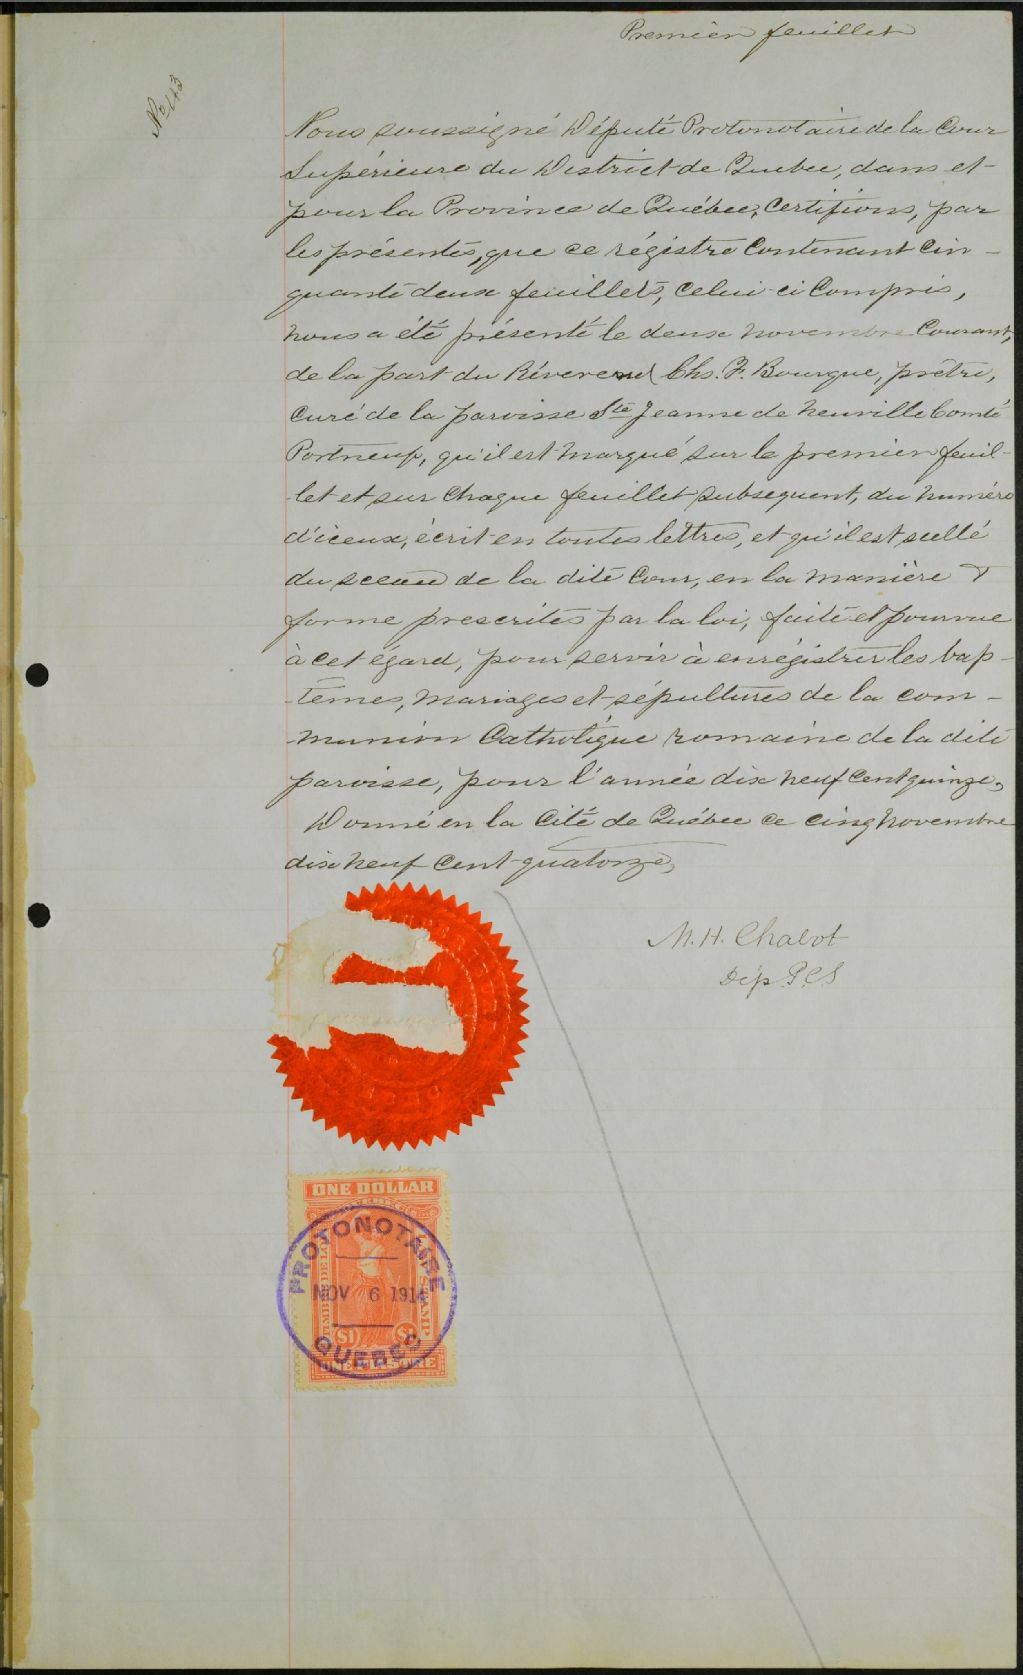 Premier feuillet
No 43
Nous soussigné Député Protonotaire de la Cour
Supérieure du District de Quebec, dans et
pour la Province de Québec, Certifions, par
les présentes, que ce régistre Contenant Cin-
quante deux feuillets, Celui-ci Compris,
nous a été présenté le deux novembre Courant,
de la part du Réverend Chs. F. Bourque, prêtre,
Curé de la paroisse Ste Jeanne de Neuville Comté
Portneuf, qu'il est marqué sur le premier feuil-
-let et sur Chaque feuillet subsequent, du numéro
d'iceux, écrit en toutes lettres, et qu'il est scellé
du sceau de la dite Cour, en la manière &
forme prescrites par la loi, faite et pourvue
à cet égard, pour servir à enrégistrer les bap-
-têmes, mariages et sépultures de la com-
-munion Catholique romaine de la dite
paroisse, pour l'année dix neuf Cent quinze,
Donné en la Cité de Québec ce cinq Novembre
dix neuf Cent quatorze,
M. H. Chabot
Dép. P.C.S
ONE DOLLAR
PROTONOTAIRE
NOV 6 1914
TIMBRE DE LOI
STAMP
$1 $1
QUEBEC
ONE PIASTRE